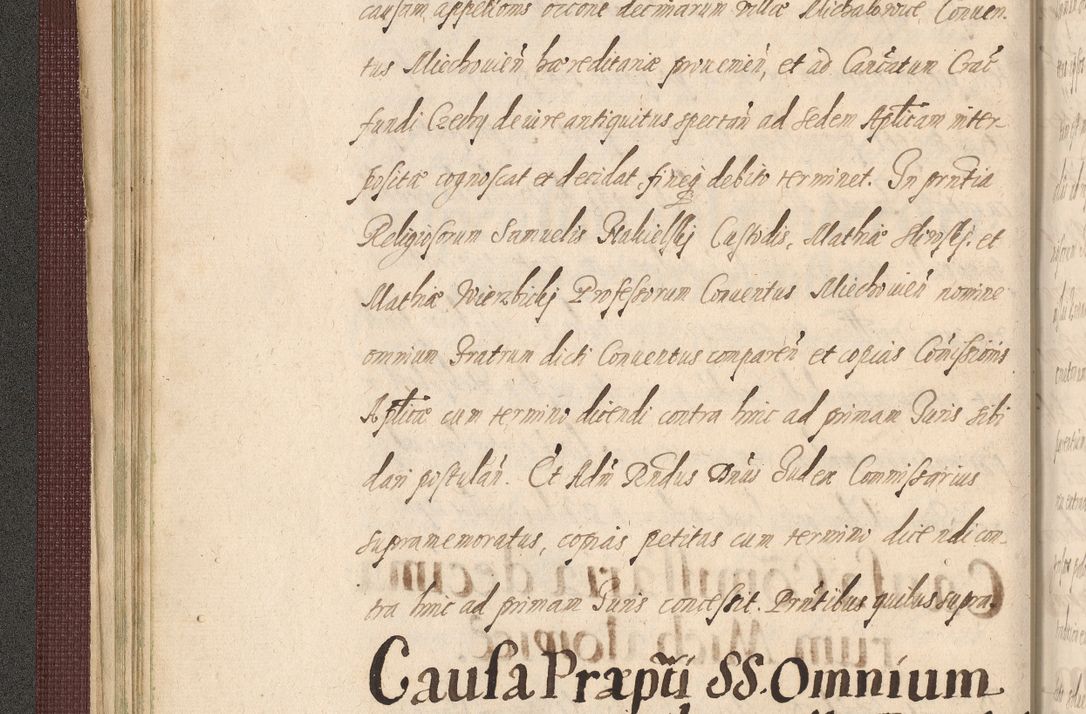 causam appe͠llonis occone decimarum villæ Michalowice Conven-
tus Miechovien̄ hæreditariæ provenien̄, et ad Cantatum Crac̄
fundi Czechy de iure antiquitus spectan̄ ad Sedem Aplicam inter-
positæ cognoscat et decidat, fineq̨ debito terminet. In prn̄tia
Religiosorum Samuelis Nakielski Custodis, Mathiæ et
Mathiæ Wierzbickj Professorum Conventus Miechovien̄ nomine
omnium Fratrum dicti Conventus comparen̄ et copias Com̄issionis
Aplicæ cum termino dicendi contra hinc ad primam Juris sibi
dari postulan̄. Et Adm̄ Rn̄dus Dn̄us Judex Commissarius
supramemoratus, copias petitas cum termino dicendi con-
tra hinc ad primam Juris concessit. Prn̄tibus quibus supra.
Causa Præptī SS. Omnium